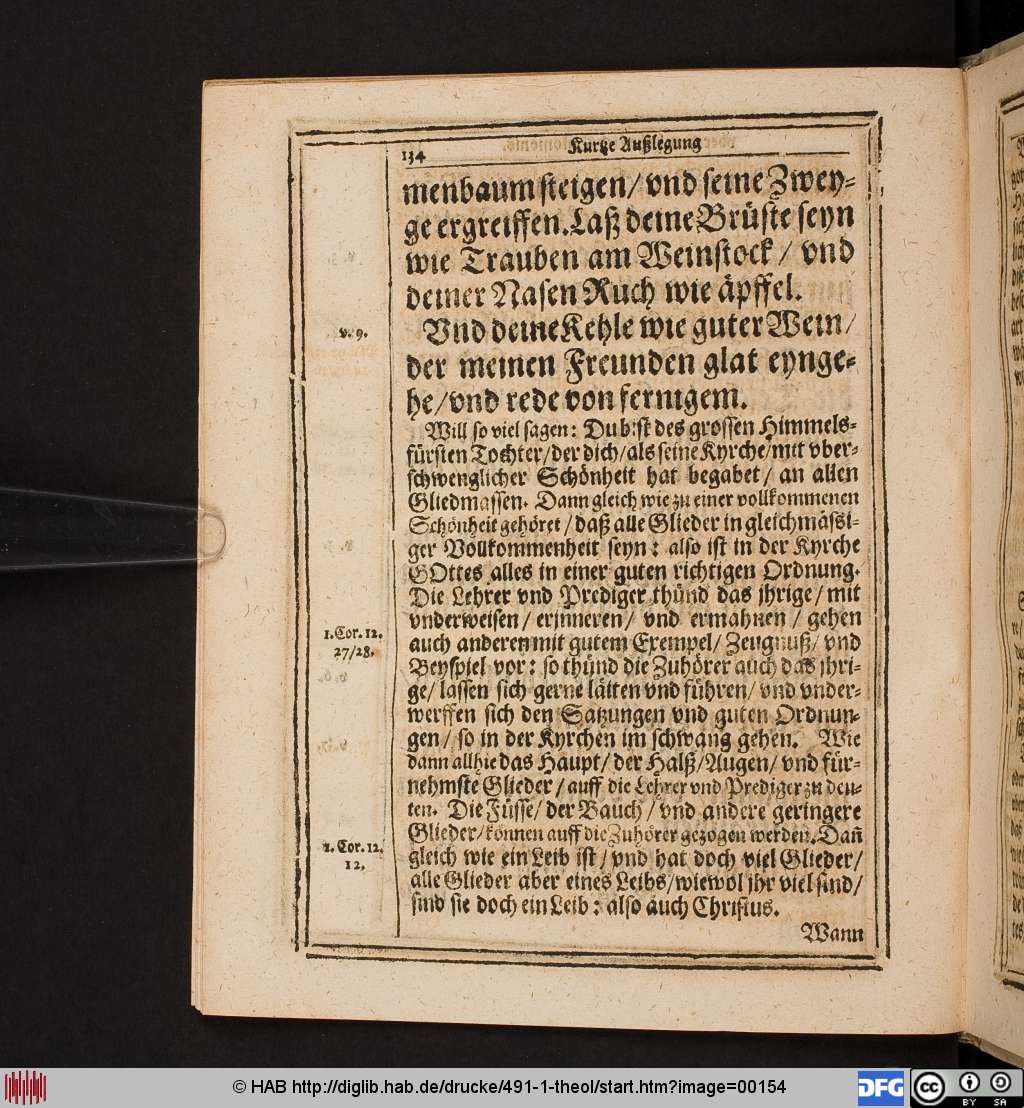 134
Kurtze Außlegung
menbaum steigen/ vnd seine Zwey-
ge ergreiffen. Laß deine Brüste seyn
wie Trauben am Weinstock / vnd
deiner Nasen Ruch wie äpffel.
v. 9.
Vnd deine Kehle wie guter Wein/
der meinen Freunden glat eynge-
he/ vnd rede von fernigem.
Will so viel sagen: Du bist des grossen Himmels-
fürsten Tochter/ der dich/ als seine Kyrche/ mit vber-
schwenglicher Schönheit hat begabet/ an allen
Gliedmassen. Dann gleich wie zu einer vollkommenen
Schönheit gehöret / daß alle Glieder in gleichmässi-
ger Vollkommenheit seyn: also ist in der Kyrche
GOttes alles in einer guten richtigen Ordnung.
Die Lehrer vnd Prediger thünd das jhrige/ mit
1. Cor. 12.
27/28.
vnderweisen/ erjnneren/ vnd ermahnen / gehen
auch anderen mit gutem Exempel/ Zeugnuß/ vnd
Beyspiel vor: so thünd die Zuhörer auch das jhri-
ge/ lassen sich gerne läiten vnd führen/ vnd vnder-
werffen sich den Satzungen vnd guten Ordnun-
gen/ so in der Kyrchen im schwang gehen. Wie
dann allhie das Haupt/ der Halß/ Augen/ vnd für-
nehmste Glieder / auff die Lehrer vnd Prediger zu deu-
ten. Die Füsse/ der Bauch / vnd andere geringere
Glieder/ können auff die Zuhörer gezogen werden. Dañ
1. Cor. 12.
12.
gleich wie ein Leib ist / vnd hat doch viel Glieder/
alle Glieder aber eines Leibs/ wiewol jhr viel sind/
sind sie doch ein Leib : also auch Christus.
Wann
© HAB http://diglib.hab.de/drucke/491-1-theol/start.htm?image=00154
DFG
cc
BY SA